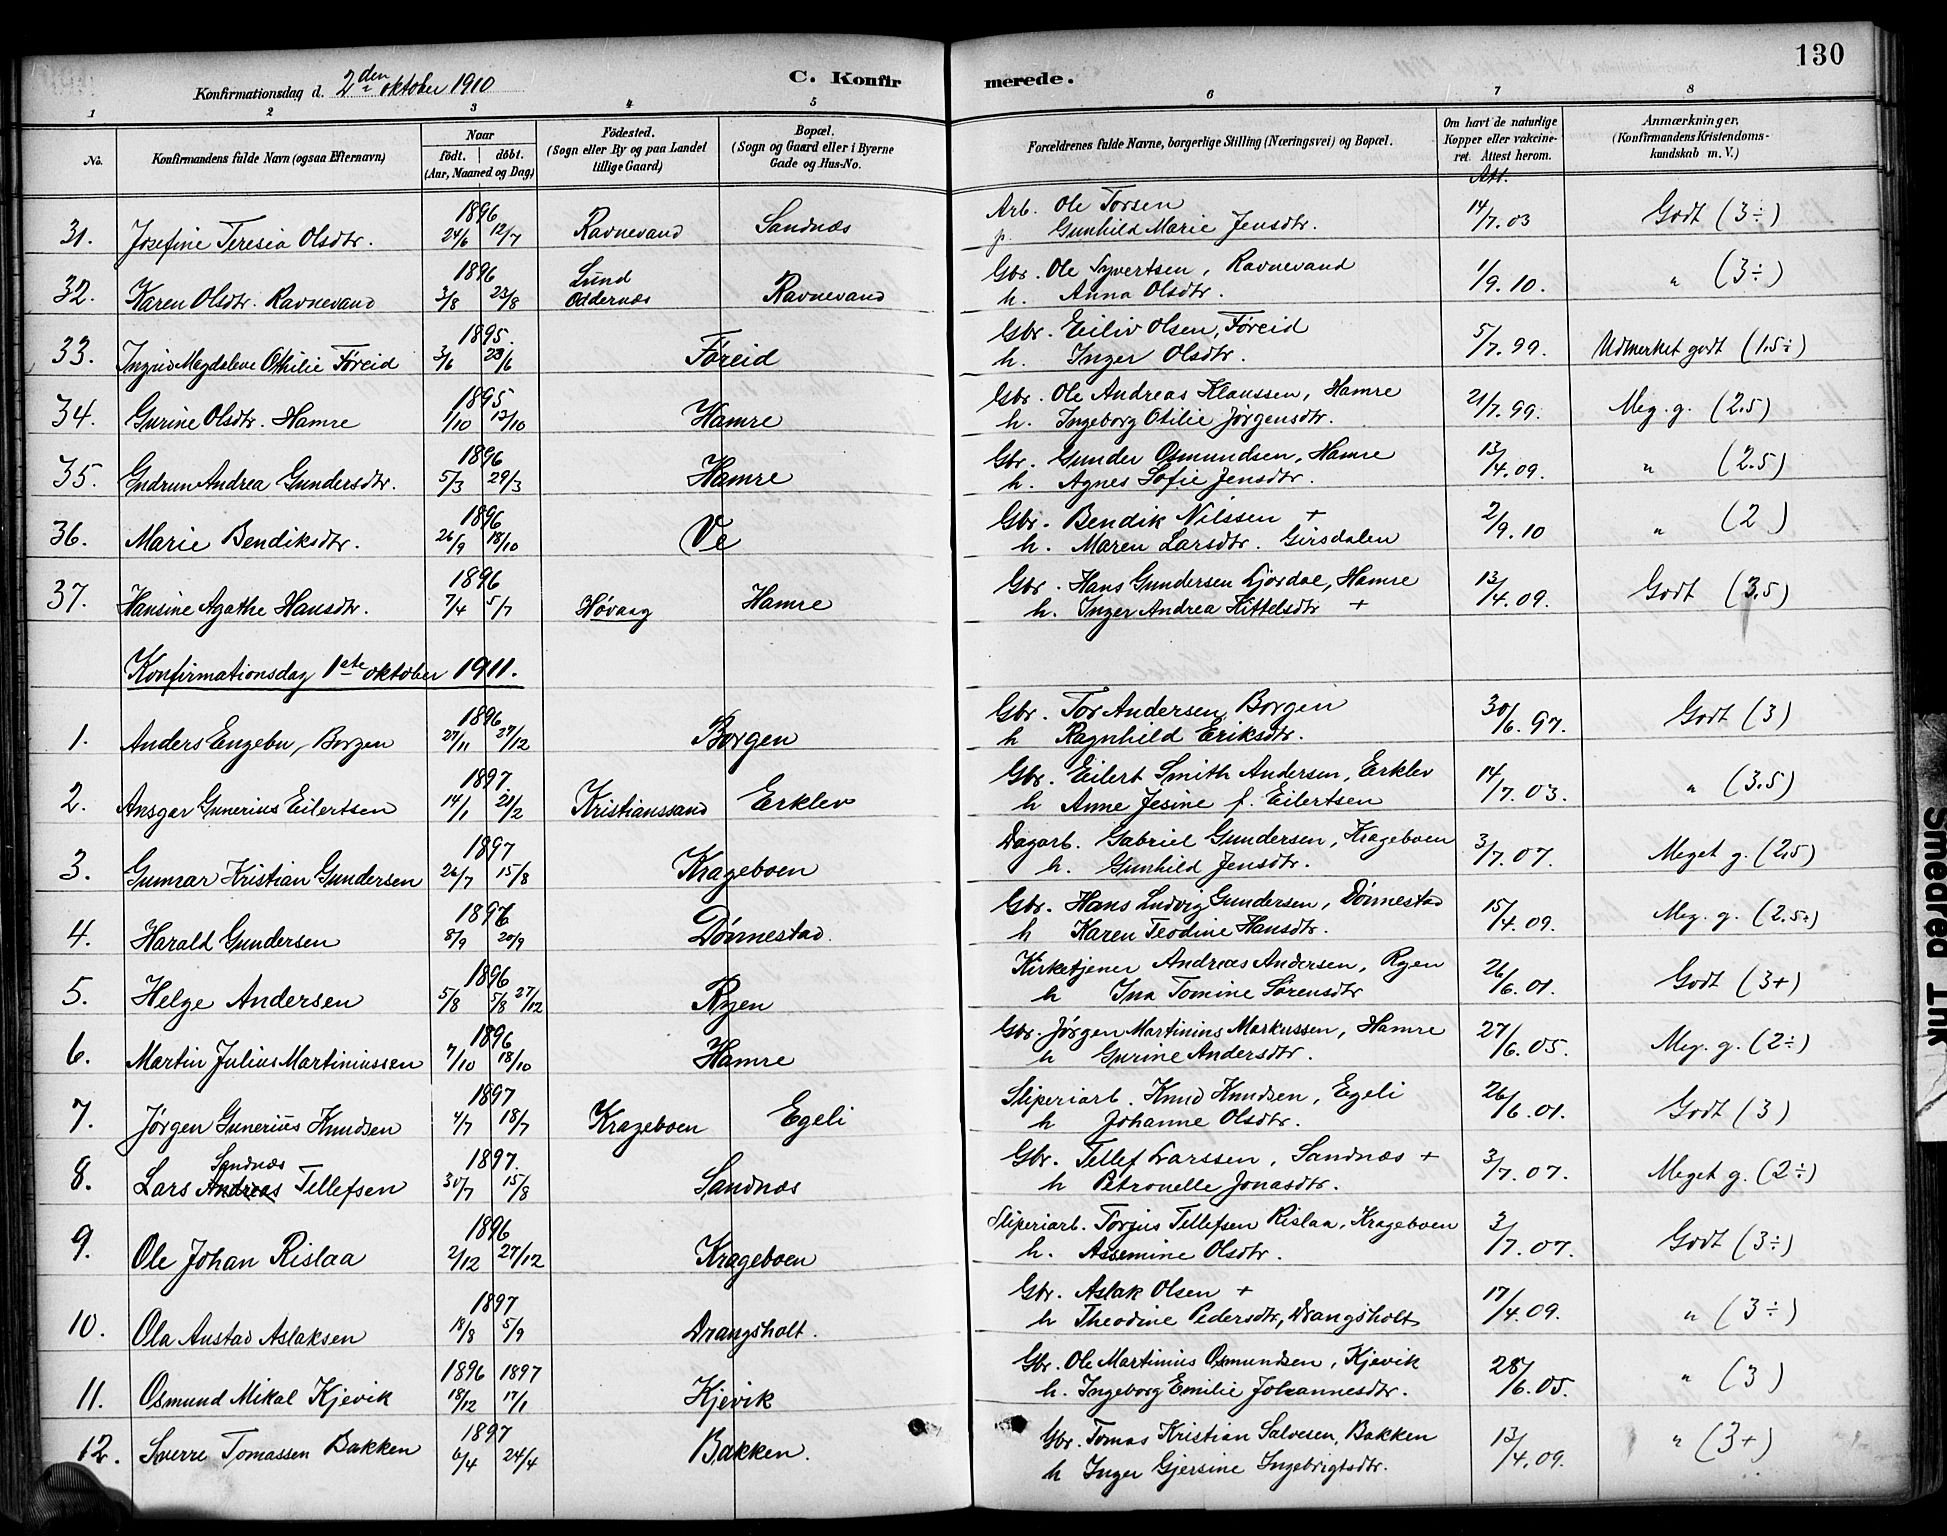 130
Konfirmationsdag d. 2den oktober 1910
C. Konfirmerede.
1 2 3 4 5 6 7 8
No.
Konfirmandens fulde Navn (ogsaa Efternavn)
Naar
födt. döbt.
(Aar, Maaned og Dag)
Födested.
(Sogn eller By og paa Landet tillige Gaard)
Bopæl.
(Sogn og Gaard eller i Byerne Gade og Hus-No.
Forældrenes fulde Navne, borgerlige Stilling (Næringsvei) og Bopæl.
Om havt de naturlige Kopper eller vakcineret. Attest herom.
Att.
Anmærkninger,
(Konfirmandens Kristendomskundskab m. V.)
31. Josefine Teresia Olsdtr. 1896 24/6 12/7 Ravnevand Sandnæs Arb. Ole Torsen 14/7.03 Godt (3÷)
p. Gunhild Marie Jensdtr.
32. Karen Olsdtr. Ravnevand 1896 3/8 23/8 Lund Oddernæs Ravnevand Gbr. Ole Syvertsen, Ravnevand 1/9.10. " (3÷)
h. Anna Olsdtr.
33. Ingrid Magdalene Othilie Føreid 1895. 3/6 23/6 Føreid Gbr. Eiliv Olsen, Føreid 5/7.99. Udmerket godt (1.5÷)
h. Inger Olsdtr.
34. Gurine Olsdtr. Hamre 1895 1/10 13/10 Hamre Gbr. Ole Andreas Klaussen, Hamre 21/7.99. Meg. g. (2.5)
h. Ingeborg Otilie Jørgensdtr.
35. Gudrun Andrea Gundersdtr. 1896 5/3 29/3 Hamre Gbr. Gunder Osmundsen, Hamre 13/4.09. " (2.5)
h. Agnes Sofie Jensdtr.
36. Marie Bendiksdtr. 1896 26/9 18/10 Ve Gbr. Bendik Nilssen + 2/9.10 " (2)
h. Maren Larsdtr. Girsdalen
37. Hansine Agathe Hansdtr. 1896 7/4 5/7 Høvaag Hamre Gbr. Hans Gundersen Ljørdal, Hamre 13/4.09. Godt (3.5)
h. Inger Andrea Kittelsdtr +
Konfirmationsdag 1ste oktober 1911.
1. Anders Engebu, Borgen 1896 27/11 27/12 Borgen Gbr. Tor Andersen Borgen 30/6.97. Godt (3)
h Ragnhild Eriksdtr.
2. Ansgar Gunerius Eilertsen 1897. 14/1 21/2 Kristianssand Erklev Gbr. Eilert Smith Andersen, Erklev 14/7.03. " (3.5)
h Anne Jesine f. Eilertsen
3. Gunnar Kristian Gundersen 1897 26/7 15/8 Krageboen Dagarb. Gabriel Gundersen, Krageboen 3/7.07. Meget g. (2.5)
h. Gunhild Jensdtr.
4. Harald Gundersen 1896 8/9 20/9 Dønnestad. Gbr. Hans Ludvig Gundersen, Dønnestad 15/4.09. Meg. g. (2.5+)
h Karen Teodine Hansdtr.
5. Helge Andersen 1896 5/8 5/8 27/12 Ryen Kirketjener Andreas Andersen, Ryen 26/6.01. Godt (3+)
h Ina Tomine Sørensdtr
6. Martin Julius Martiniussen 1896 7/10 18/10 Hamre Gbr. Jørgen Martinius Markussen, Hamre 27/6.05. Meg. g. (2÷)
h Gurine Andersdtr.
7. Jørgen Gunerius Knudsen 1897 4/7 18/7 Krageboen Egeli Sliperiarb. Knud Knudsen, Egeli 26/6.01. Godt (3)
h Johanne Olsdtr.
8. Lars Andreas Sandnæs Tellefsen 1897. 30/7 15/8 Sandnæs Gbr. Tellef Larssen, Sandnæs + 3/7.07. Meget g. (2÷)
h Petronelle Jonasdtr.
9. Ole Johan Rislaa 1896 2/12 27/12 Krageboen Sliperiarb. Torjus Tellefsen Rislaa, Krageboen 3/7.07. Godt (3÷)
h. Assemine Olsdtr.
10. Ola Austad Aslaksen 1897 18/8 5/9 Drangsholt. Gbr. Aslak Olsen + 17/4.09. " (3÷)
h Theodine Pedersdtr, Drangsholt
11. Osmund Mikal Kjevik 1896 1897 18/12 17/1 Kjevik Gbr. Ole Martinius Osmundsen, Kjevik 28/6.05. " (3)
h. Ingeborg Emilie Johannesdtr.
12. Sverre Tomassen Bakken 1897 6/4 24/4 Bakken. Gbr. Tomas Kristian Salvesen, Bakken 13/4.09. " (3+)
h Inger Gjersine Ingebrigtsdtr.
Smeared Ink